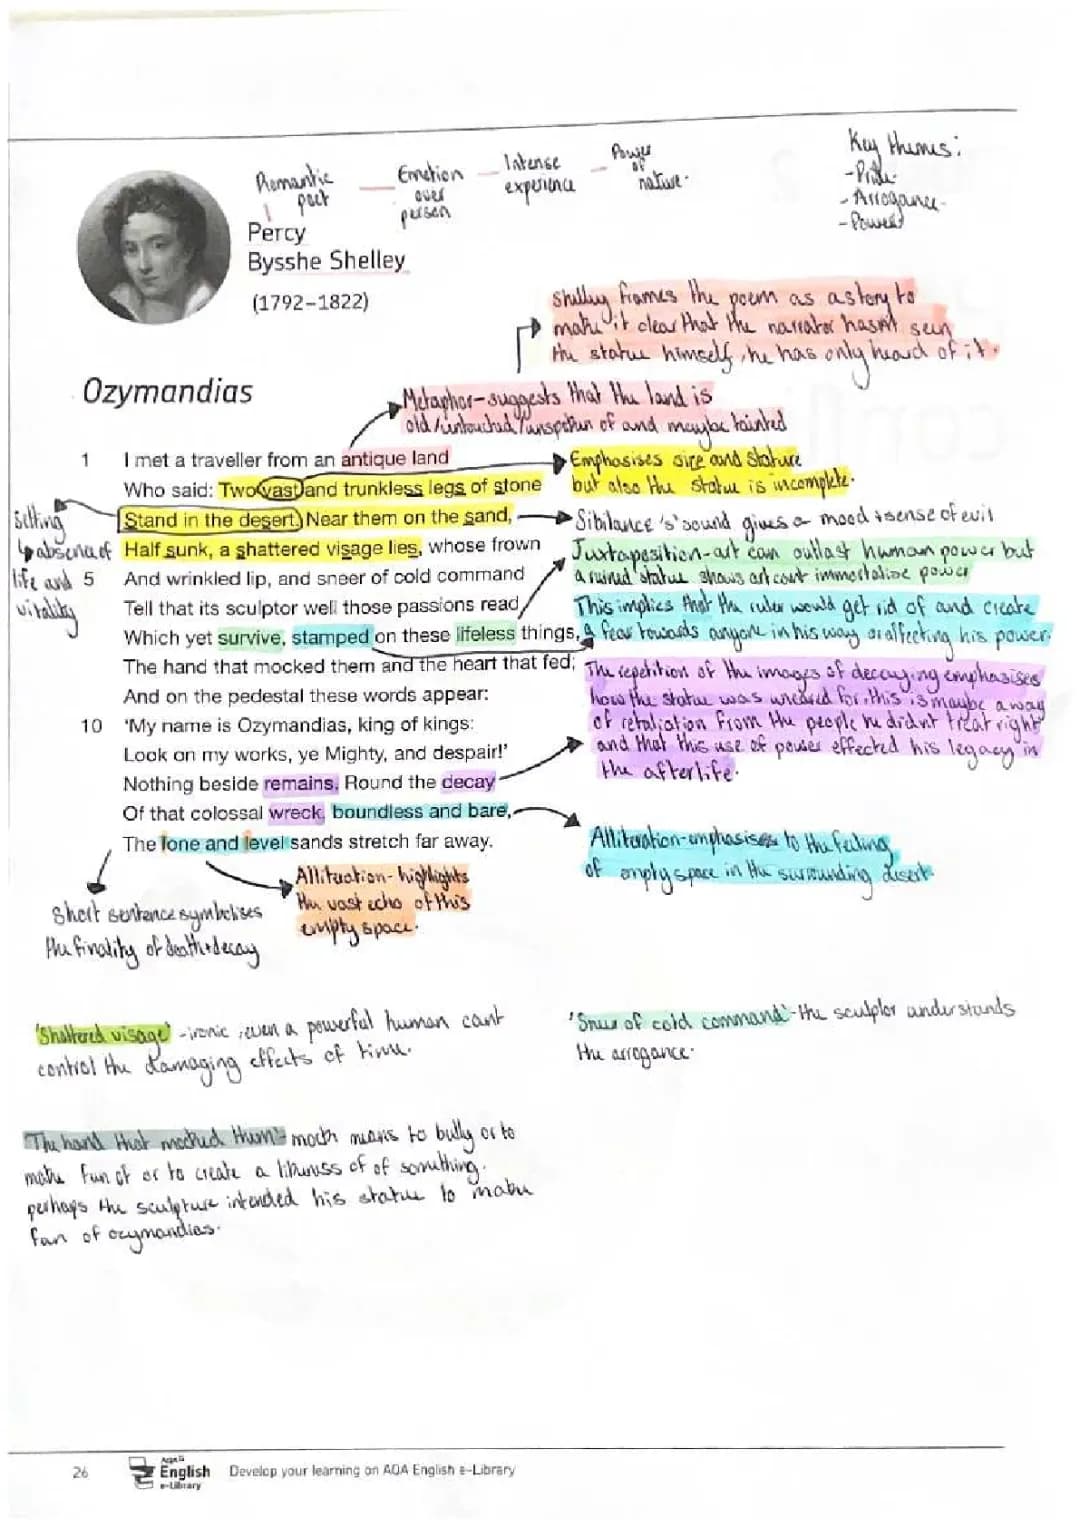 Romantic poet — Emotion over person — Intense experience — Power of nature.
Key themes:
- Pride
- Arrogance
- Power
Percy
Bysshe Shelley
(1792–1822)
Shelley frames the poem as a story to
make it clear that the narrator hasn't seen
the statue himself, he has only heard of it.
Ozymandias
Metaphor - suggests that the land is
old / untouched / unspoken of and maybe tainted
1 I met a traveller from an antique land
Who said: Two vast and trunkless legs of stone
Stand in the desert. Near them on the sand,
Half sunk, a shattered visage lies, whose frown
5 And wrinkled lip, and sneer of cold command
Tell that its sculptor well those passions read
Which yet survive, stamped on these lifeless things,
The hand that mocked them and the heart that fed;
And on the pedestal these words appear:
10 'My name is Ozymandias, king of kings:
Look on my works, ye Mighty, and despair!'
Nothing beside remains. Round the decay
Of that colossal wreck, boundless and bare,
The lone and level sands stretch far away.
Setting
↳ absence of
life and
vitality
Emphasises size and stature
but also the statue is incomplete.
Sibilance 's' sound gives a mood + sense of evil
Juxtaposition - art can outlast human power but
a ruined statue shows art cant immortalise power
This implies that the ruler would get rid of and create
a fear towards anyone in his way or affecting his power.
The repetition of the images of decaying emphasises
how the statue was uncared for, this is maybe a way
of retaliation from the people he didnt treat right
and that this use of power effected his legacy in
the afterlife.
Alliteration - emphasises to the feeling
of empty space in the surrounding desert.
Alliteration - highlights
the vast echo of this
empty space.
Short sentence symbolises
the finality of death + decay
'Shattered visage' - ironic, even a powerful human cant
control the damaging effects of time.
'Sneer of cold command' - the sculptor understands
the arrogance.
'The hand that mocked them' - mock means to bully or to
make fun of or to create a likeness of of something.
perhaps the sculpture intended his statue to make
fun of ozymandias.
26
English
e-Library
Develop your learning on AQA English e-Library